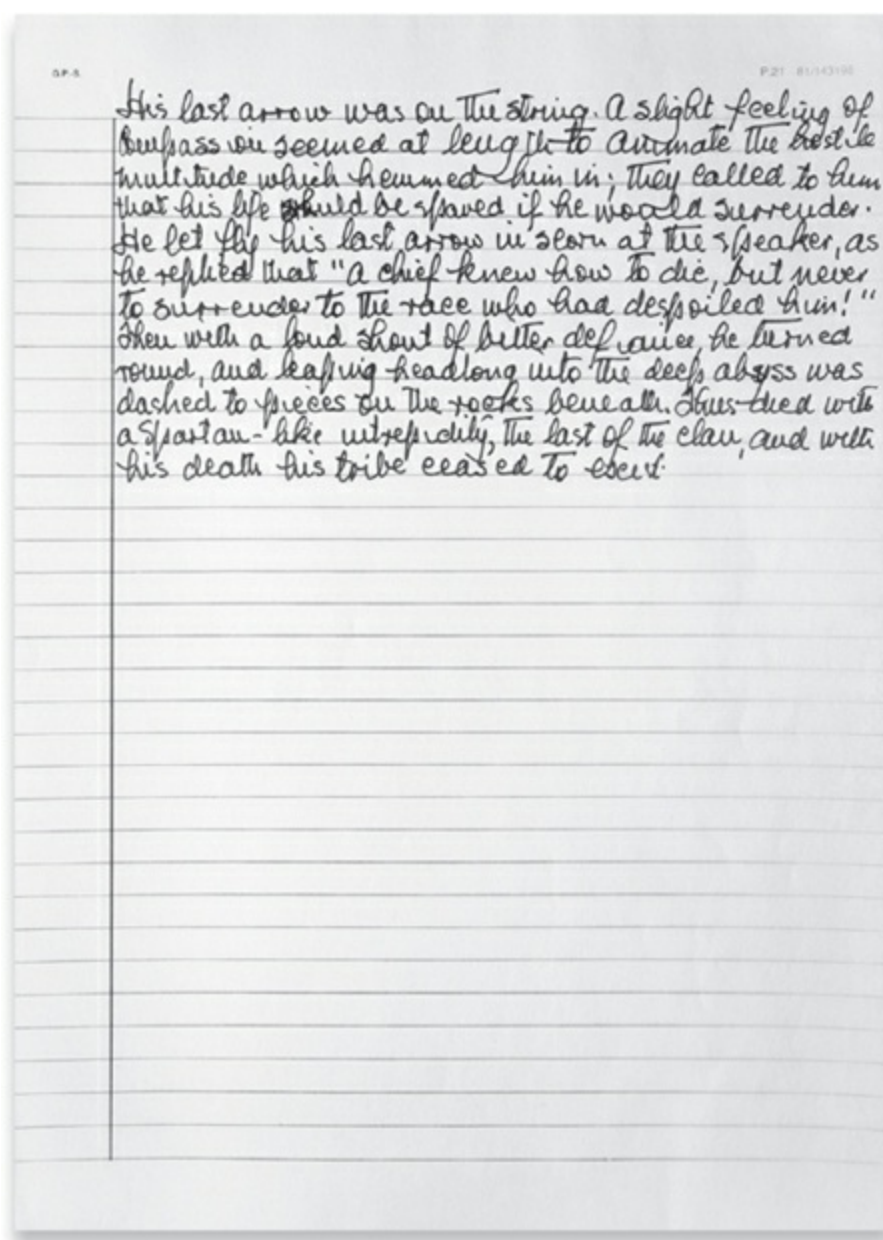 G.P.-S.
P.21 81/143198
His last arrow was on the string. A slight feeling of
Compassion seemed at length to animate the hostile
multitude which hemmed him in; they called to him
that his life should be spared if he would surrender.
He let fly his last arrow in scorn at the speaker, as
he replied that "a chief knew how to die, but never
to surrender to the race who had despoiled him!"
Then with a loud shout of bitter defiance, he turned
round, and leaping headlong into the deep abyss was
dashed to pieces on the rocks beneath. Thus died with
a Spartan-like intrepidity, the last of the clan, and with
his death his tribe ceased to exist.